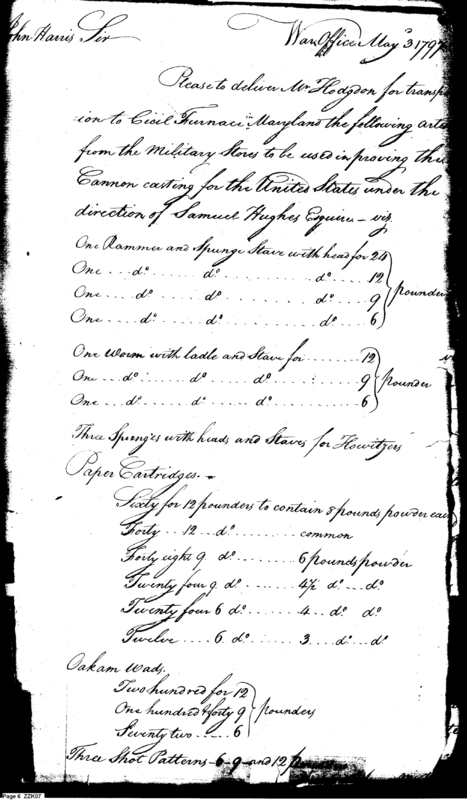 John Harris Sir War Office May 3 1797
Please to deliver Mr Hodgdon for transp
ion to Cicil Furnace in Maryland the following arti
from the Military Stores to be used in proving the
Cannon casting for the United States under the
direction of Samuel Hughes Esquire - viz
One Rammer and Spunge Stave with head for 24
One .... do ........ do ............ do ..... 12
One .... do ........ do ............ do ..... 9 pounder
One .... do ........ do ............ do ..... 6
One Worm with ladle and Stave for ......... 12
One ... do ........ do ........ do ........ 9 pounder
One ... do ........ do ........ do ........ 6
Three Spunges with heads and Staves for Howitzers
Paper Cartridges. -
Sixty for 12 pounders to contain 8 pounds powder eac
Forty ... 12 .. do ......... common
Forty eight 9 do ........ 6 pounds powder
Twenty four 9 do ........ 4½ do ... do
Twenty four 6 do ........ 4 .... do do
Twelve ..... 6 do ........ 3 .... do .. do
Oakam Wads.
Two hundred for 12
One hundred & forty 9 pounders
Seventy two ..... 6
Three Shot Patterns - 6 - 9 - and 12
Page 6 ZZK07